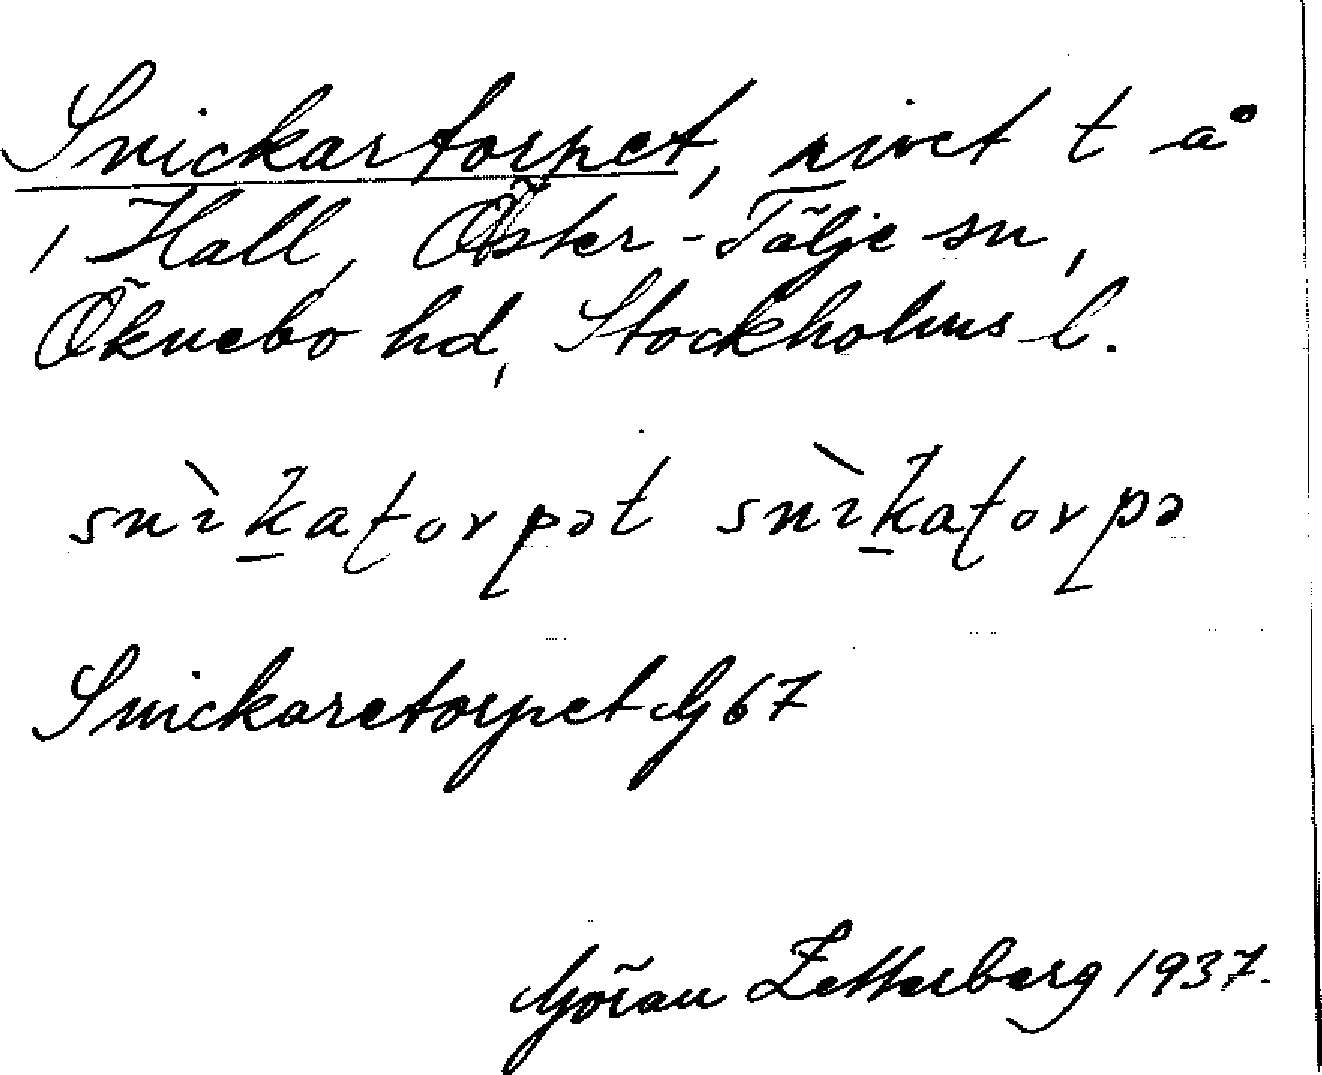 Snickartorpet, rivet t å
i Hall, Öster-Tälje sn,
Öknebo hd, Stockholms l.
snìkaʈorpət snìkaʈorpə
Snickaretorpet G 67
Göran Zetterberg 1937.